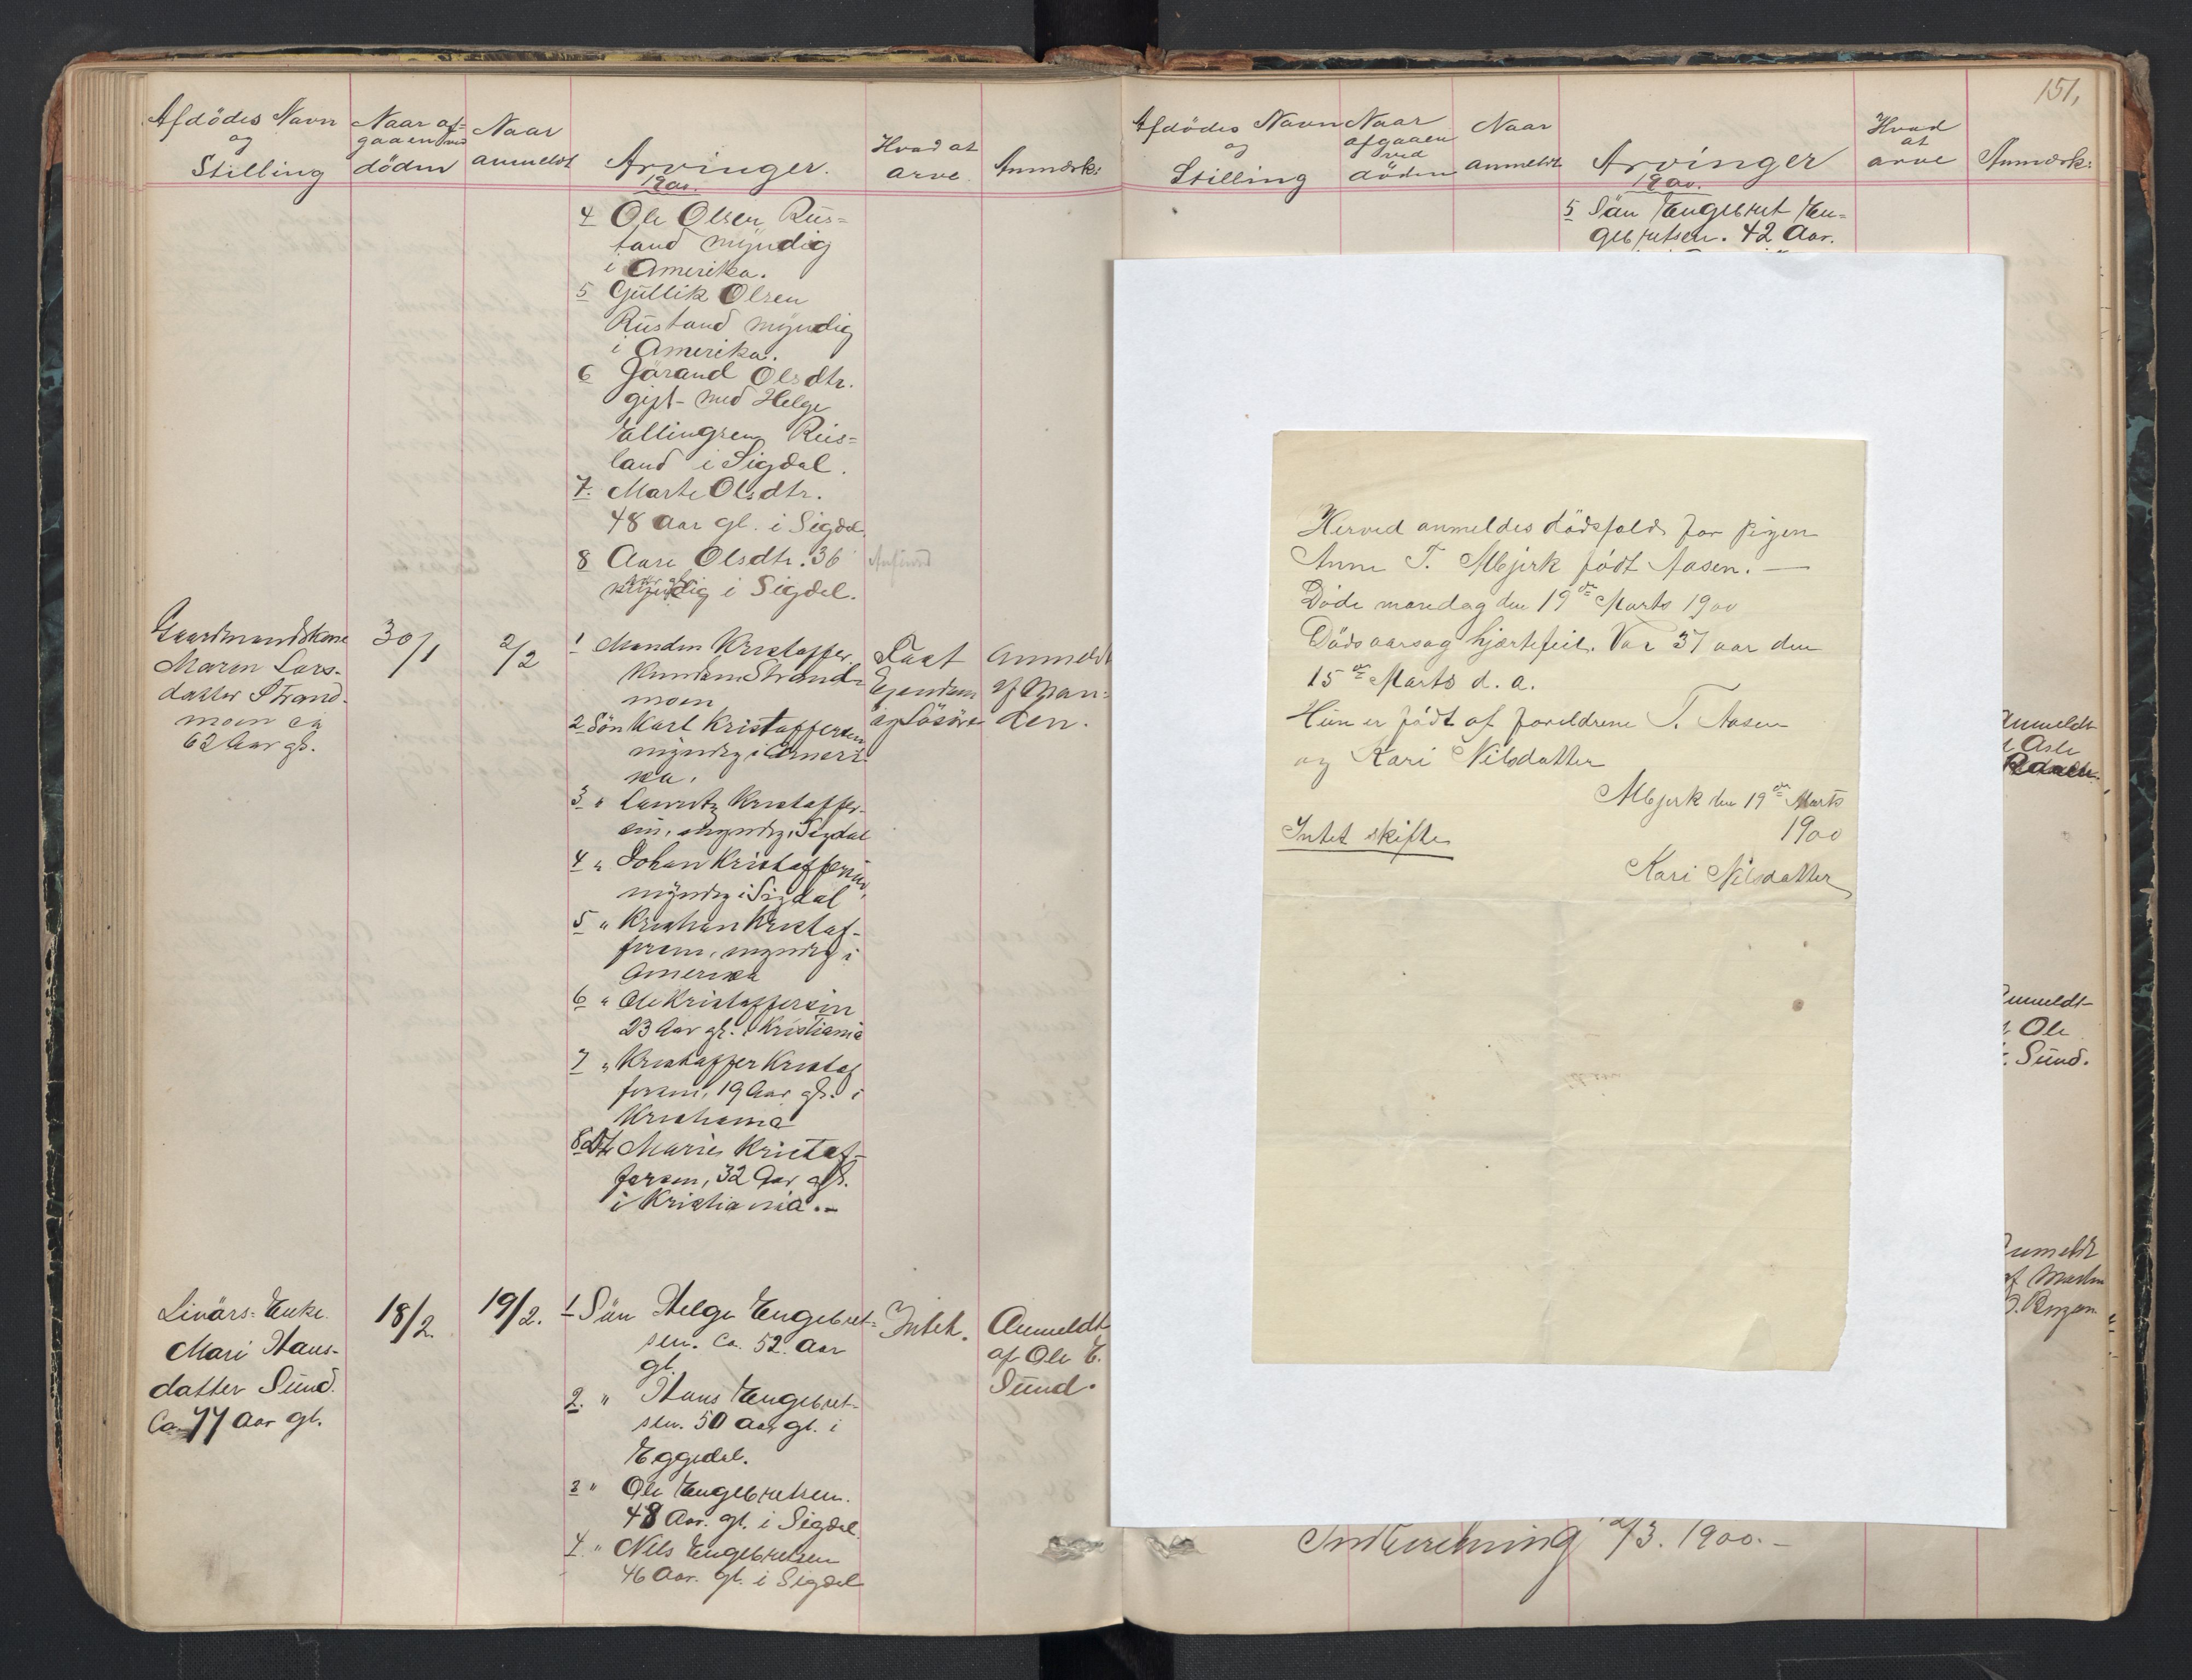 Afdödes Navn
og
Stilling
Naar af-
gaaen ved
döden
Naar
anmeldt
Arvinger.
Hvad at
arve
Anmærk:
1900.
4 Ole Olsen Rus-
tand myndig
i Amerika.
5 Gullik Olsen
Rustand myndig
i Amerika.
6 Jörand Olsdtr.
gift med Helge
Ellingsen Rus-
land i Sigdal.
7. Marte Olsdtr.
48 Aar gl. i Sigdal
8 Aase Olsdtr. 36
Aar gl.
myndig i Sigdal.
Gaardmandskone
Maren Lars-
datter Strand-
moen ca
62 Aar gl.
30/1
2/2
1 Manden Kristoffer
Knudsen Strand-
moen
2 Sön Karl Kristoffersen
myndig i Ameri-
ka.
3 " Lauritz Kristoffer-
sen, myndig i Sigdal
4 " Johan Kristoffersen,
myndig i Sigdal
5 " Kristian Kristof-
fersen, myndig i
Amerika
6 " Ole Kristoffersen
23 Aar gl. i Kristiania
7 " Kristoffer Kristof
fersen, 19 Aar gl. i
Kristiania
8 Dtr Marie Kristof-
fersen, 32 Aar gl.
i Kristiania.-
Fast
Ejendom
og Lösöre
Anmeldt
af Man-
den.
Livörs-Enke
Mari Hans-
datter Sund.
Ca 77 Aar gl.
18/2.
19/2.
1 Sön Helge Engebret-
sen. Ca. 52. Aar
gl.
2. " Hans Engebret-
sen. 50 Aar gl. i
Eggedal.
3 " Ole Engebretsen.
48 Aar. gl. i Sigdal.
4. " Nils Engebretsen
46 Aar. gl. i Sigdal
Intet.
Anmeldt
af Ole E.
Sund.
151,
Afdödes Navn
og
Stilling
Naar
afgaaen
ved
döden
Naar
anmeldt
Arvinger
Hvad
at
arve
Anmærk:
1900.
5 Sön Engebret En-
gebretsen. 42 Aar.
Herved anmeldes dödsfald for pigen
Anne T. Mbjerk född Aasen. —
Döde mandag den 19de Marts 1900
Dödsaarsag hjertefeil. Var 37 aar den
15de Marts d. a.
Hun er född af foreldrene T. Aasen
og Kari Nilsdatter
Mbjerk den 19de Marts
1900
Intet skifte
Kari Nilsdatter
Anmeldt
Asle
Anmeldt
Ole
Sund.
Anmeldt
af Martin
Indberetning 2/3. 1900.-